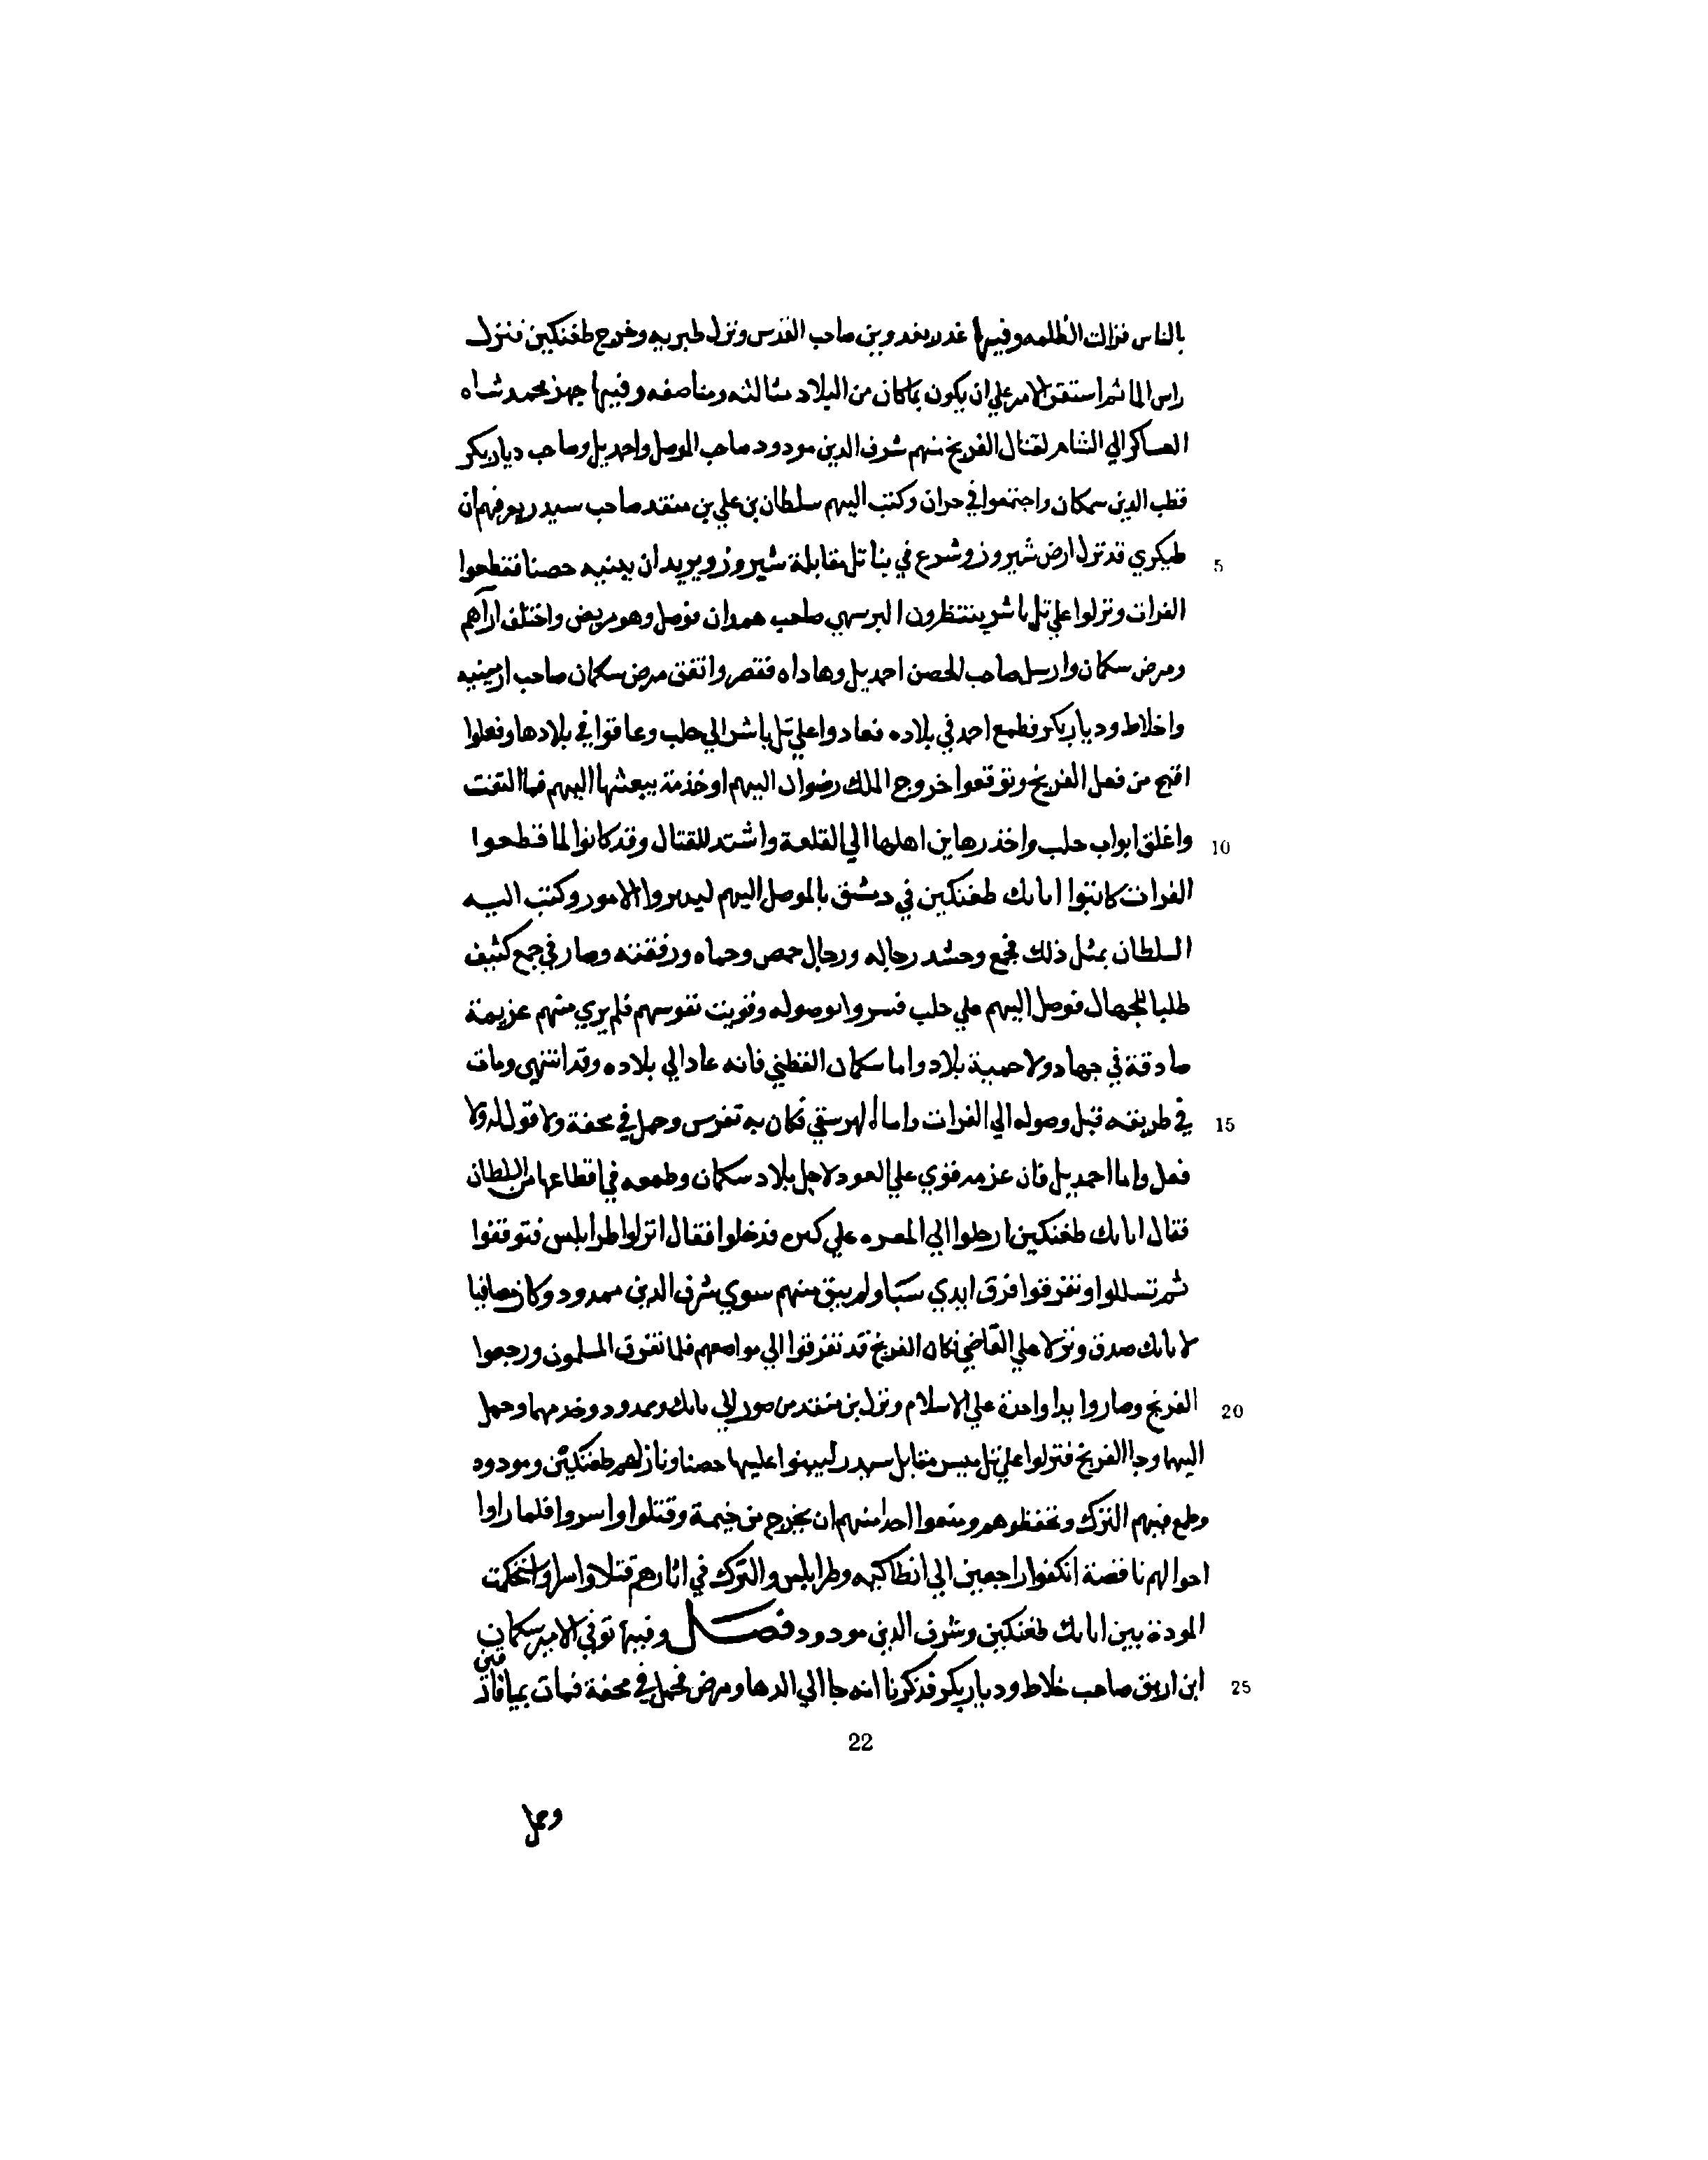 بالناس فزالت الظلمه وفيها غدر بغدوين صاحب القدس ونزل طبريه وخرج طغتكين فنزل
راس الما ثم استقر الامر علي ان يكون بما كان من البلاد مثالثه ومناصفه وفيها جهز محمد شاه
العساكر الي الشام لقتال الفرنج منهم شرف الدين مودود صاحب الموصل واحمديل وصاحب دياربكر
قطب الدين سكمان واجتمعوا في حران وكتب اليهم سلطان بن علي بن منقد صاحب سيدر يعرفهم ان
طيكري قد نزل ارض شيروز وشرع في بنا تل مقابلة شيروز ويريد ان يبنيه حصنا فقطعوا 5
الفرات ونزلوا علي تل باشر ينتظرون البرسهي صاحب همدان فوصل وهو مريض واختلف ارآهم
ومرض سكمان وارسل صاحب الحصن احمديل وهاداه فقصر واتفق مرض سكمان صاحب ارمينيه
واخلاط ودياربكر فطمع احمد في بلاده فعادوا علي تل باشر الي حلب وعاقوا في بلادها وفعلوا
اقبح من فعل الفرنج وتوقعوا خروج الملك رضوان اليهم اوخذمة يبعثها اليهم فما التفت
واغلق ابواب حلب واخذ رهاين اهلها الي القلعة واشتد للقتال وقد كانوا لما قطعوا 10
الفرات كاتبوا اتابك طغتكين في دمشق بالموصل اليهم ليدبروا الامور وكتب اليه
السلطان بمثل ذلك فجمع وحشد رجاله ورجال حمص وحماه ورفقته وصار في جمع كثيف
طلبا للجهاد فوصل اليهم علي حلب فسروا بوصوله وقويت نفوسهم فلم يري منهم عزيمة
صادقة في جهاد ولا حمية بلاد واما سكمان القطبي فانه عاد الي بلاده وقد انتهي ومات
في طريقه قبل وصوله الي الفرات واما البرسقي فكان به نقرس وحمل في محفة ولا قول له ولا 15
فعل واما احمديل فان عزمه قوي علي العود لاجل بلاد سكمان وطمعه في اقطاعها من السلطان
فقال اتابك طغتكين ارحلوا الي المعره علي كره فدخلوا فقال انزلوا طرابلس فتوقفوا
ثم تسللوا وتفرقوا فرق ايدي سبا ولم يبق منهم سوي شرف الدين ممدود وكان مصافيا
لاتابك صدق ونزلا علي القاضي فكان الفرنج قد تفرقوا الي مواضعهم فلما تفرق المسلمون ورجعوا
الفرنج وصاروا يدا واحدة علي الاسلام ونزل بن منقد من صور الي بابك وممدود وخدمهما وحمل 20
اليهما وجا الفرنج فنزلوا علي تل ميس مقابل سيدر ليبنوا عليها حصنا ونازلهم طغتكين ومودود
وطمع فيهم الترك وتخطفوهم ومنعوا احدا منهم ان يخرج من خيمة وقتلوا واسروا فلما راوا
احوالهم ناقصة انكفوا راجعين الي انطاكيه وطرابلس والترك في اثارهم قتلا واسرا واستحكمت
المودة بين اتابك طغتكين وشرف الدين مودود فصل وفيها توفي الامير سكمان
ابن ارتق صاحب خلاط ودياربكر قد ذكرنا انه جا الي الرها ومرض فحمل في محفة فمات بميافارقين 25
22
وحمل